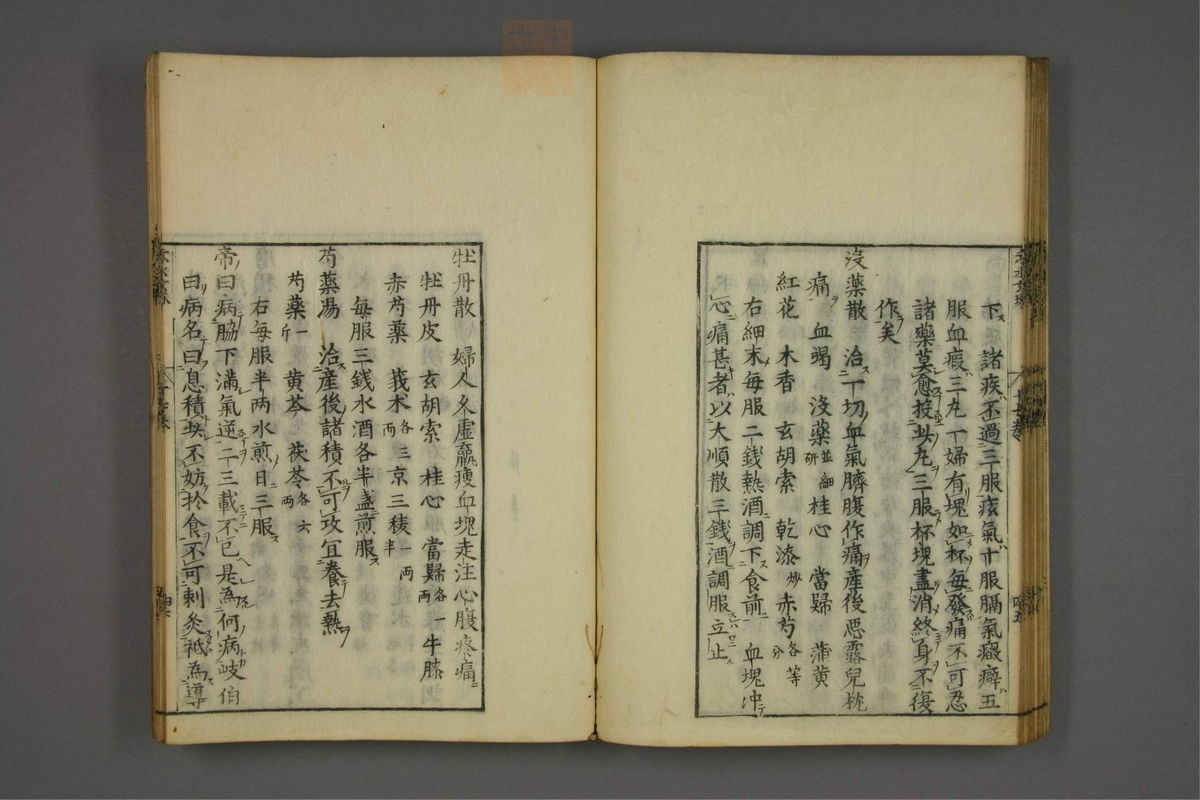 下諸疾不過三服痃氣十服膈氣癥癖五
服血瘕三丸一婦有塊如杯每發痛不可忍
諸藥莫愈投此丸三服杯塊盡消終身不復
作矣
沒藥散　治一切血氣臍腹作痛產後惡露兒枕
痛　血竭　沒藥並細研　桂心　當歸　蒲黃
紅花　木香　玄胡索　乾漆炒　赤芍各等分
右細末每服二錢熱酒調下食前　血塊冲
心痛甚者以大順散三錢酒調服立止
牡丹散　婦人久虛羸瘦血塊走注心腹疼痛
牡丹皮　玄胡索　桂心　當歸各一兩　牛膝
赤芍藥　莪朮各三兩　京三稜一兩半
每服三錢水酒各半盞煎服
芍藥湯　治產後諸積不可攻宜養去熱
芍藥一斤　黃芩　茯苓各六兩
右每服半兩水煎日三服
帝曰病脇下滿氣逆二三載不已是為何病岐伯
曰病名曰息積此不妨於食不可刺灸祗為導